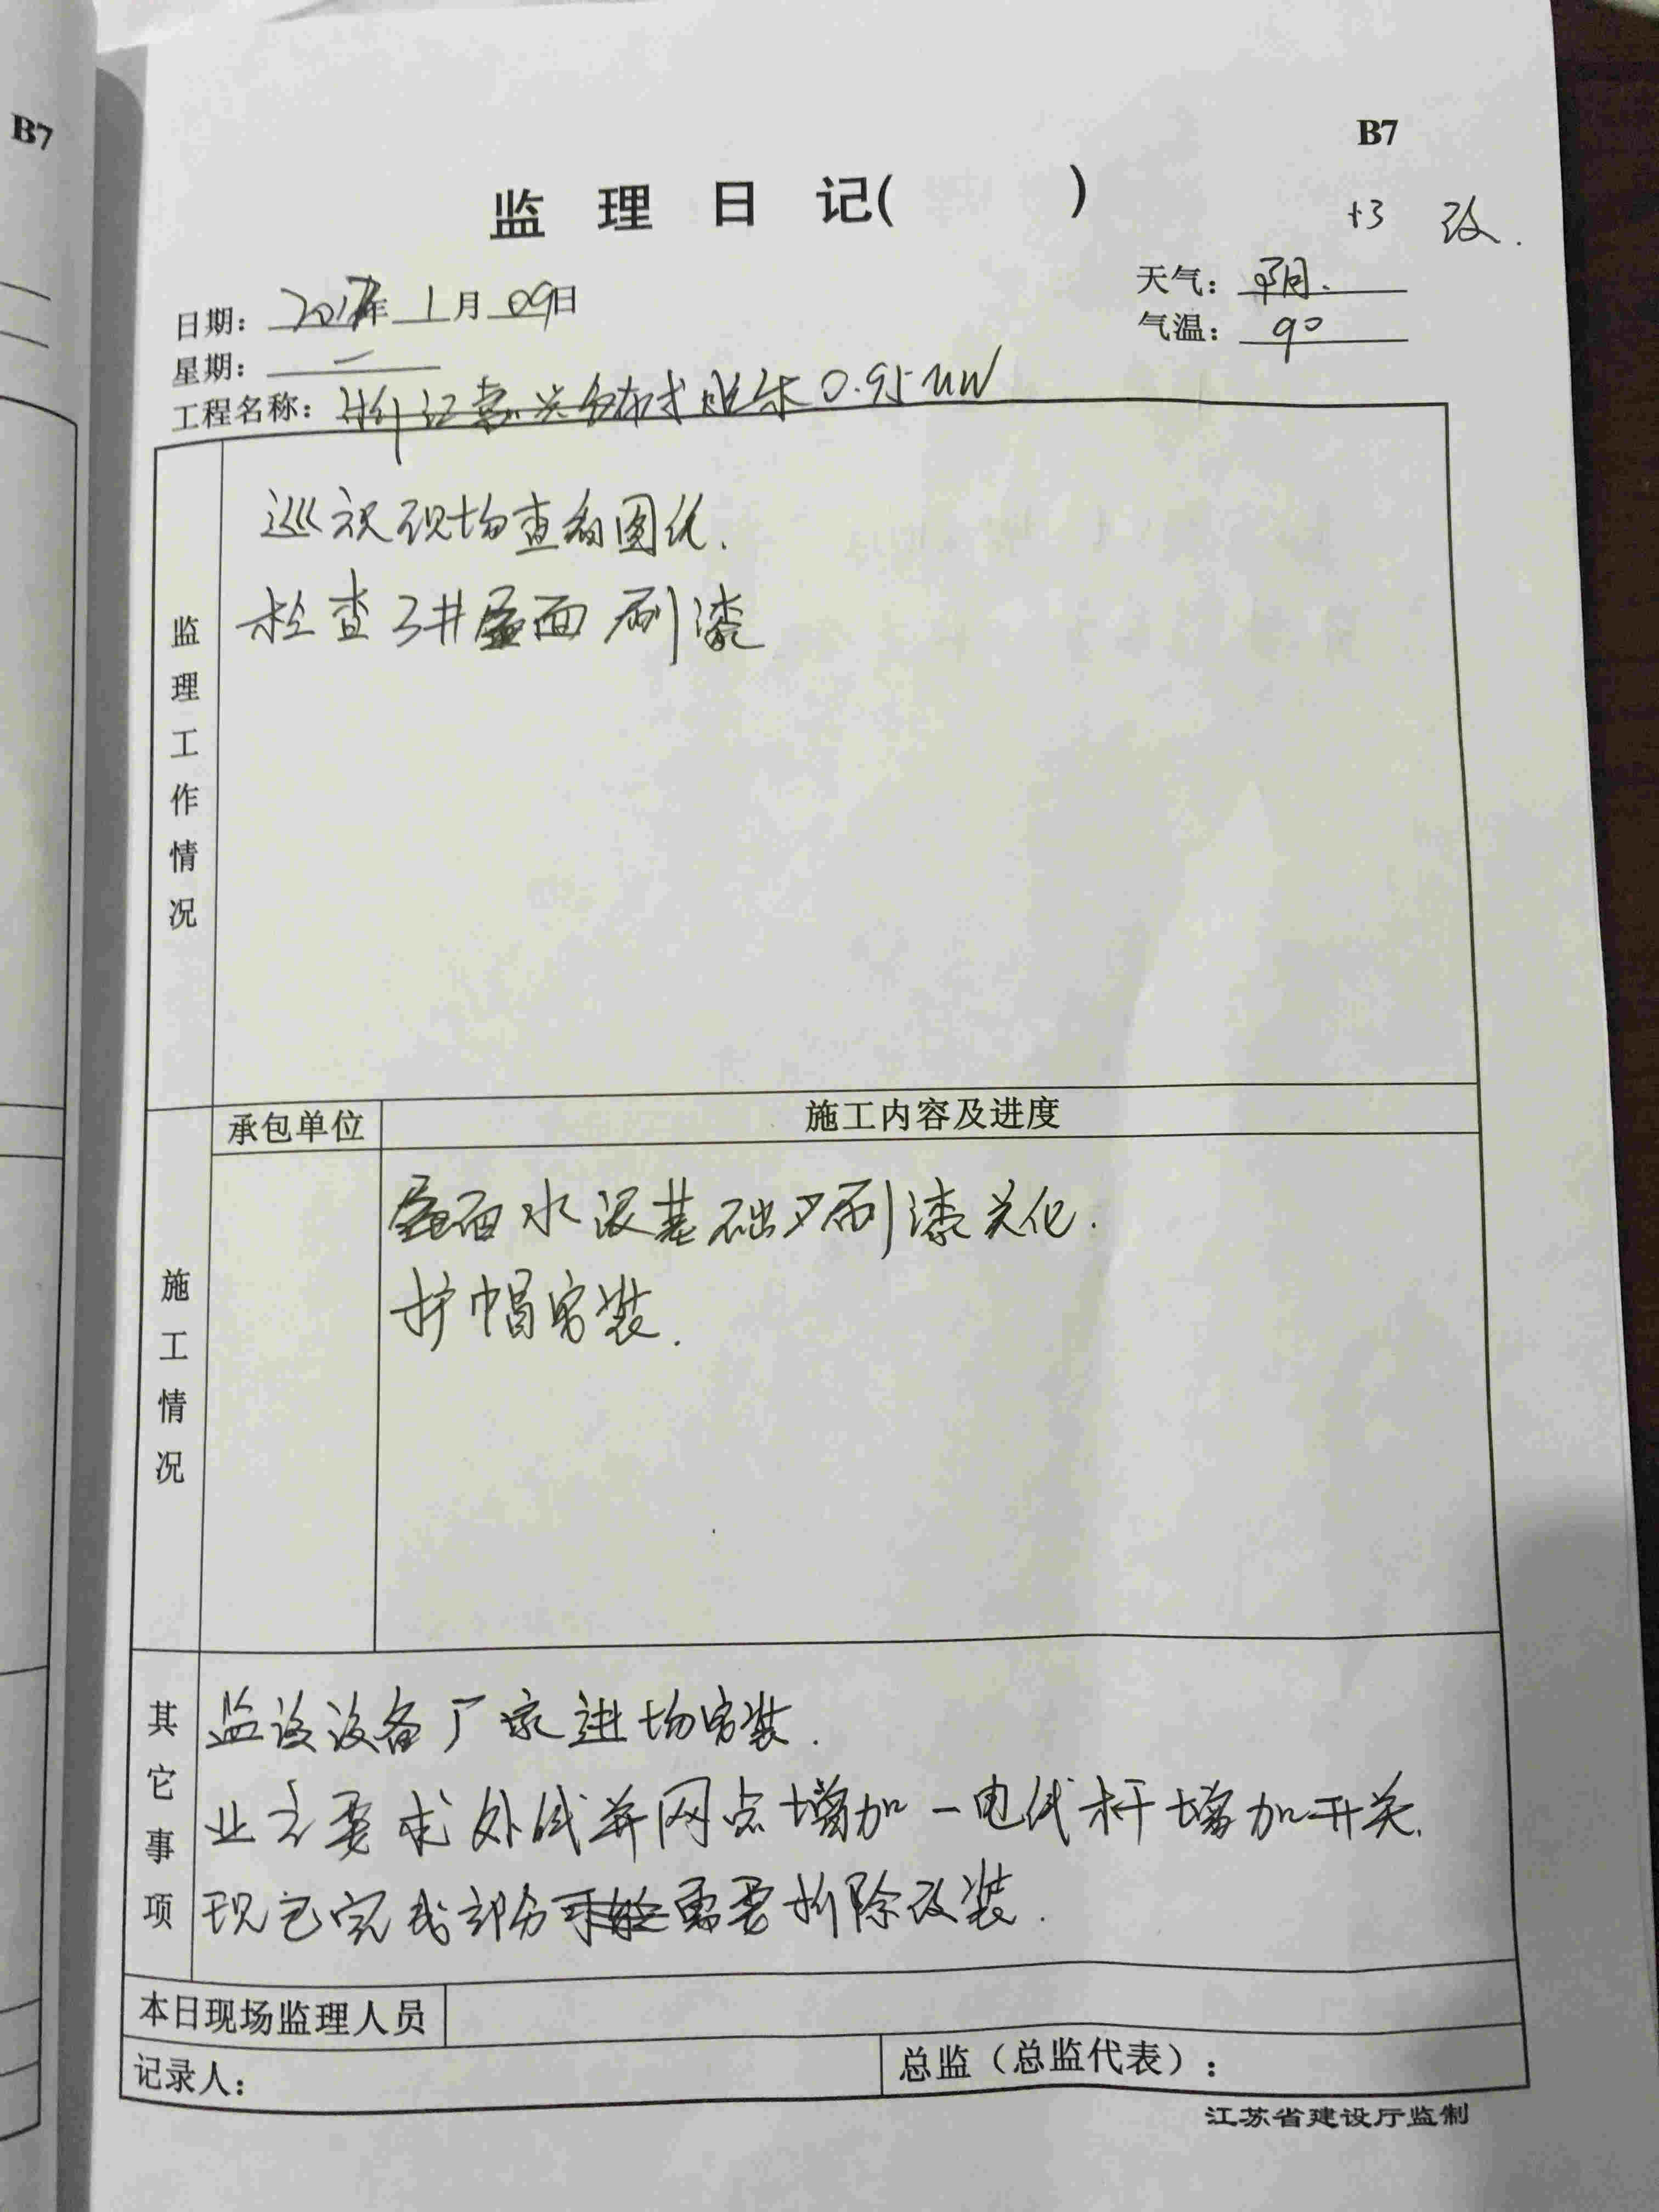 B7
B7
监理日记( )
+3 改.
日期: 2017年 1月 09日
天气: 阴.
星期: 二
气温: 9°
工程名称: 浙江嘉兴分布式 0.95MW
监理工作情况
巡视现场查看图纸.
检查3#屋面刷漆
承包单位 施工内容及进度
施工情况
屋面水泥基础刷漆美化.
护帽安装.
其它事项
监该设备厂家进场安装.
业主要求外线并网点增加一电线杆增加开关.
现已完成部分需要拆除改装.
本日现场监理人员
记录人: 总监(总监代表):
江苏省建设厅监制